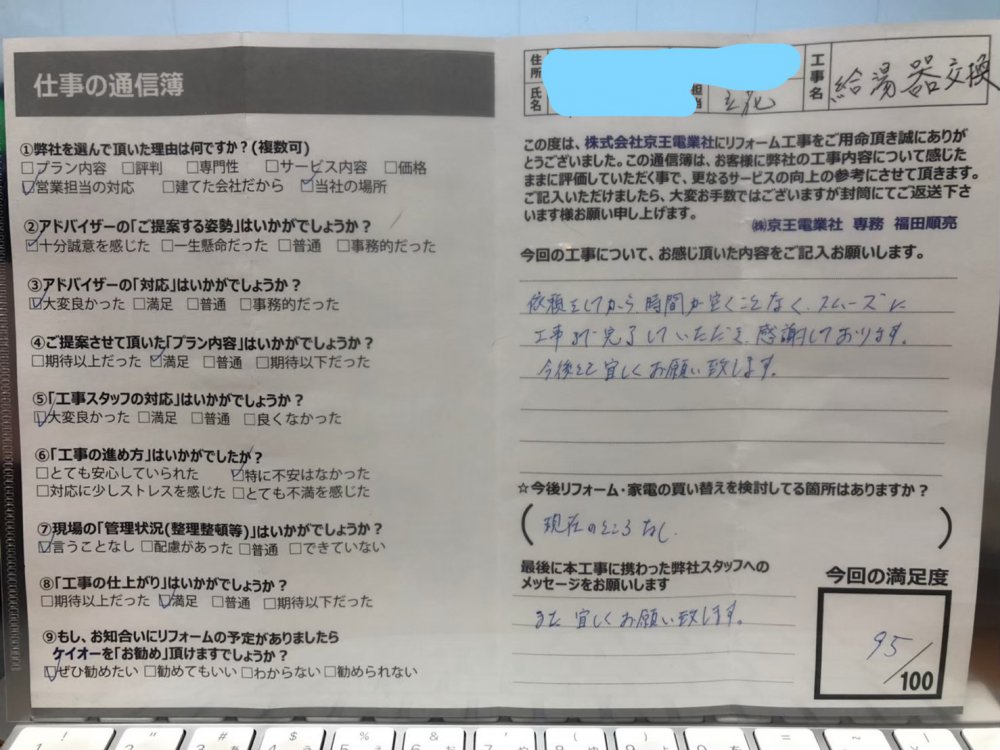 仕事の通信簿
①弊社を選んで頂いた理由は何ですか？(複数可)
□プラン内容 □評判 □専門性 □サービス内容 □価格
☑営業担当の対応 □建てた会社だから ☑当社の場所
②アドバイザーの「ご提案する姿勢」はいかがでしょうか？
☑十分誠意を感じた □一生懸命だった □普通 □事務的だった
③アドバイザーの「対応」はいかがでしょうか？
☑大変良かった □満足 □普通 □事務的だった
④ご提案させて頂いた「プラン内容」はいかがでしょうか？
□期待以上だった ☑満足 □普通 □期待以下だった
⑤「工事スタッフの対応」はいかがでしょうか？
☑大変良かった □満足 □普通 □良くなかった
⑥「工事の進め方」はいかがでしたか？
□とても安心していられた ☑特に不安はなかった
□対応に少しストレスを感じた □とても不満を感じた
⑦現場の「管理状況(整理整頓等)」はいかがでしょうか？
☑言うことなし □配慮があった □普通 □できていない
⑧「工事の仕上がり」はいかがでしょうか？
□期待以上だった ☑満足 □普通 □期待以下だった
⑨もし、お知合いにリフォームの予定がありましたら
ケイオーを「お勧め」頂けますでしょうか？
☑ぜひ勧めたい □勧めてもいい □わからない □勧められない
住所
氏名
担当 立花
工事名 給湯器交換
この度は、株式会社京王電業社にリフォーム工事をご用命頂き誠にありが
とうございました。この通信簿は、お客様に弊社の工事内容について感じた
ままに評価していただく事で、更なるサービスの向上の参考にさせて頂きます。
ご記入いただけましたら、大変お手数ではございますが封筒にてご返送下さ
います様お願い申し上げます。
㈱京王電業社 専務 福田順亮
今回の工事について、お感じ頂いた内容をご記入お願いします。
依頼をしてから、時間が空くことなく、スムーズに
工事が完了していただき、感謝しております。
今後とも宜しくお願い致します。
☆今後リフォーム・家電の買い替えを検討してる箇所はありますか？
( 現在のところなし. )
最後に本工事に携わった弊社スタッフへの
メッセージをお願いします
また 宜しくお願い致します。
今回の満足度
95/100